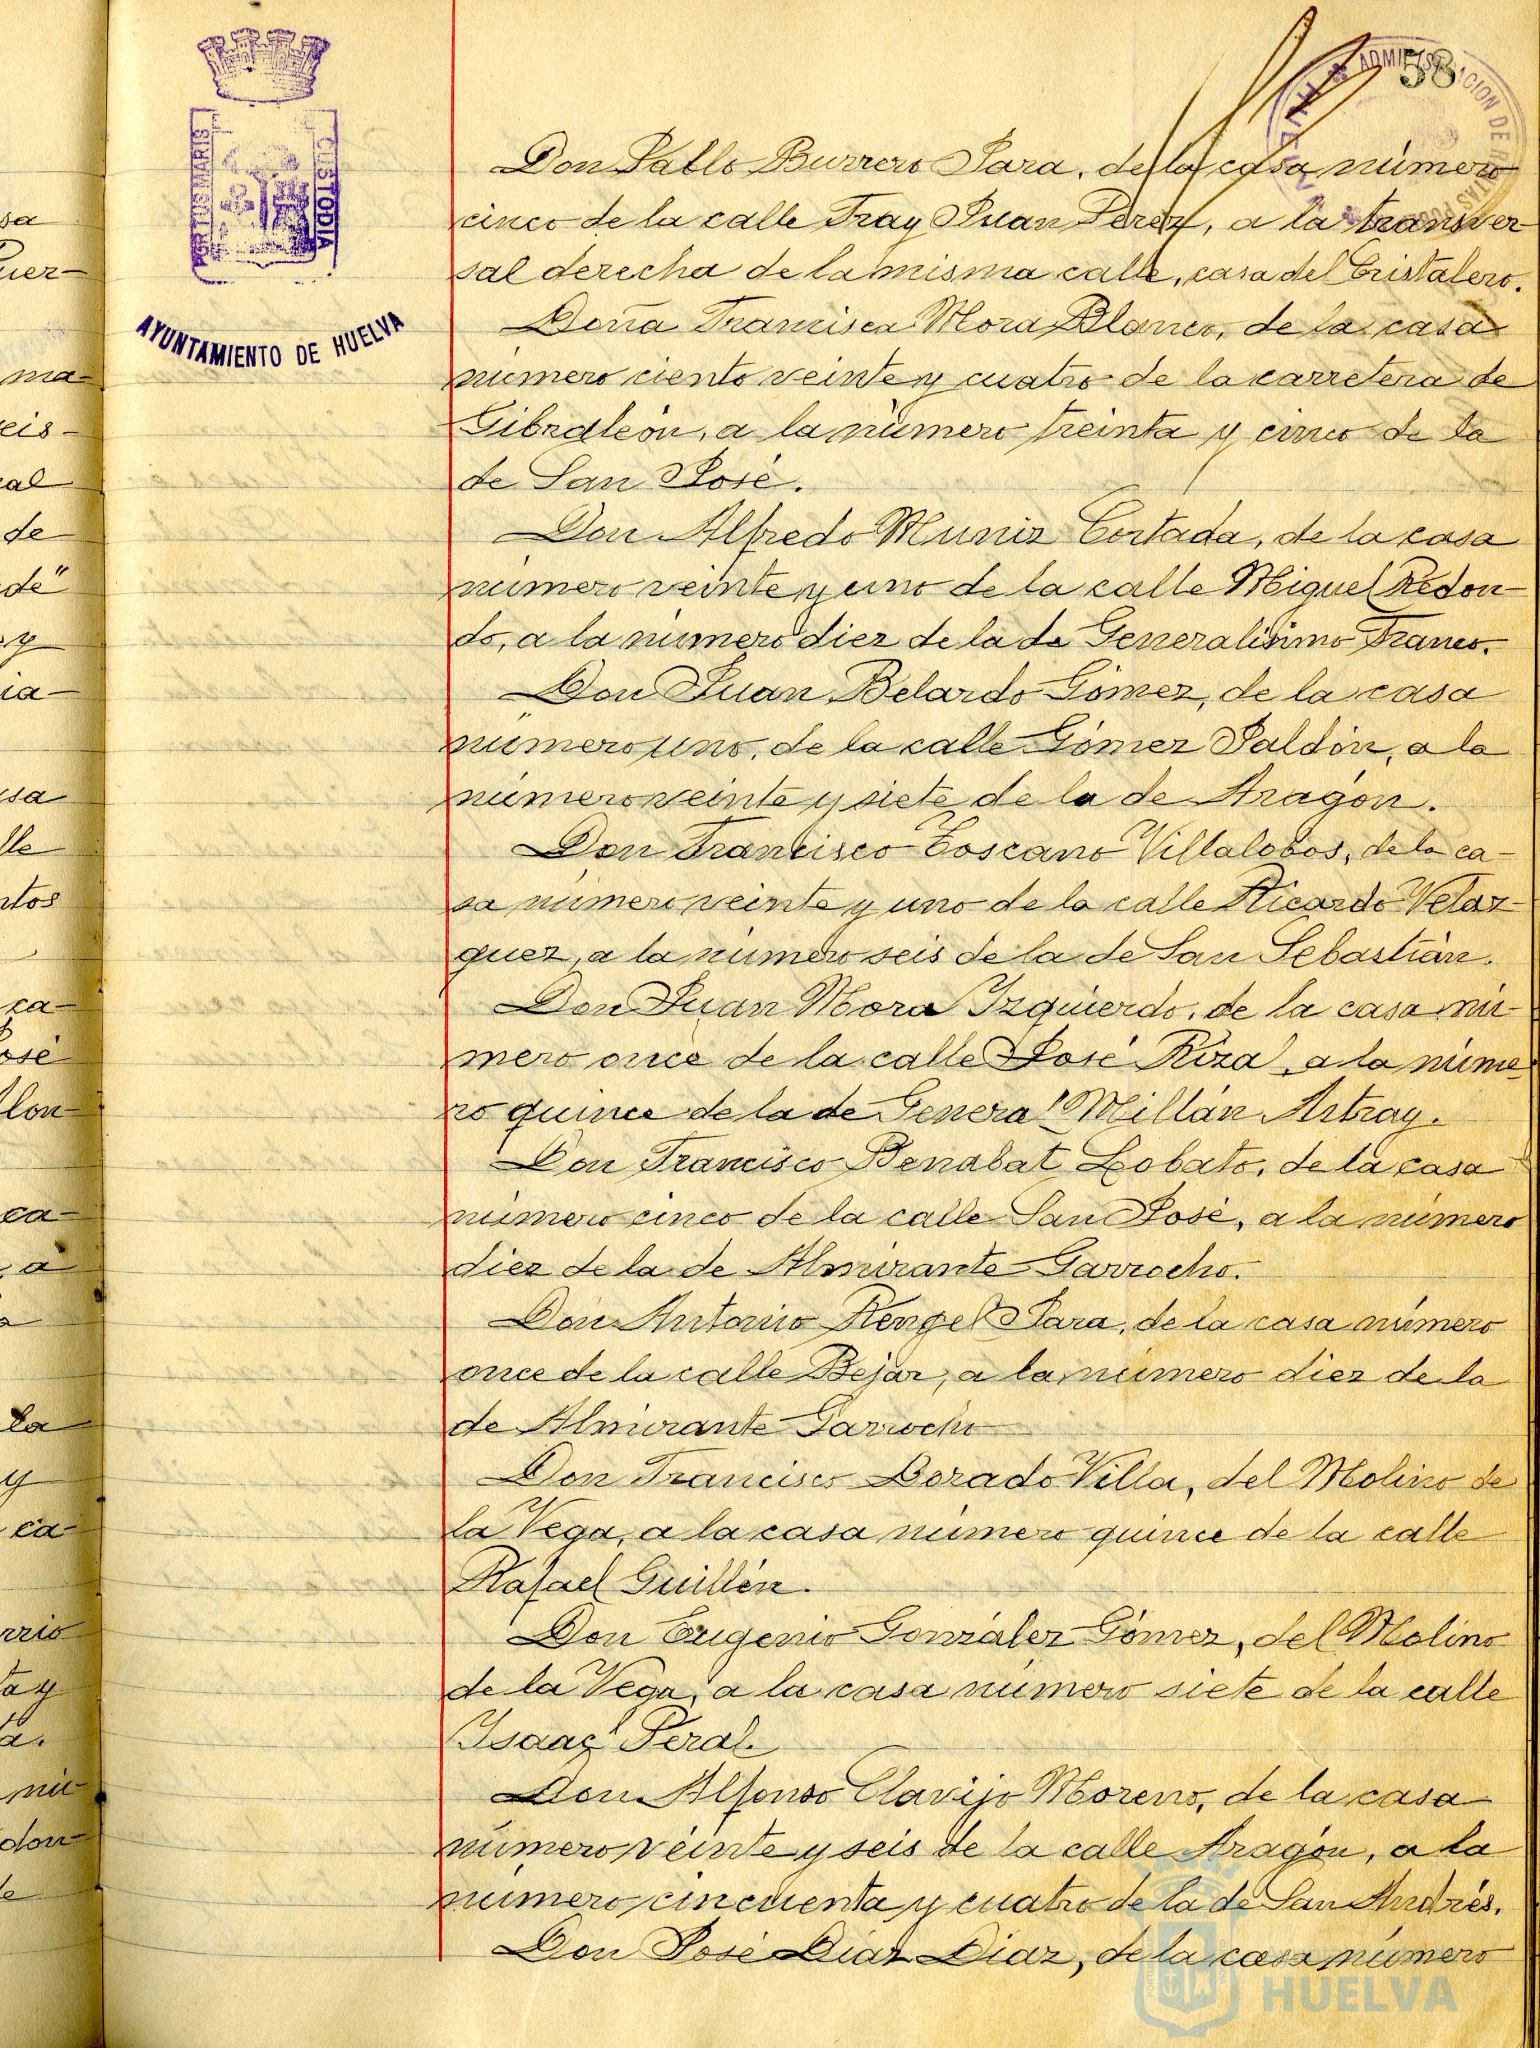 58
PORTUS MARIS
CUSTODIA
AYUNTAMIENTO DE HUELVA
ADMINISTRACION DE
Don Pablo Burrero Para, de la casa número
cinco de la calle Fray Juan Pérez, a la transver-
sal derecha de la misma calle, casa del Cristalero.
Doña Francisca Mora Blanco, de la casa
número ciento veinte y cuatro de la carretera de
Gibraleón, a la número treinta y cinco de la
de San José.
Don Alfredo Muniz Cortada, de la casa
número veinte y uno de la calle Miguel Redon-
do, a la número diez de la de Generalísimo Franco.
Don Juan Belardo Gómez, de la casa
número uno, de la calle Gómez Jaldón, a la
número veinte y siete de la de Aragón.
Don Francisco Toscano Villalobos, de la ca-
sa número veinte y uno de la calle Ricardo Velaz-
quez, a la número seis de la de San Sebastián.
Don Juan Mora Izquierdo, de la casa nú-
mero once de la calle José Riza, a la núme-
ro quince de la de General Millán Astray.
Don Francisco Benabat Lobato, de la casa
número cinco de la calle San José, a la número
diez de la de Almirante Garrocho.
Don Antonio Rengel Para, de la casa número
once de la calle Bejar, a la número diez de la
de Almirante Garrocho
Don Francisco Dorado Villa, del Molino de
la Vega, a la casa número quince de la calle
Rafael Guillén.
Don Eugenio González Gómez, del Molino
de la Vega, a la casa número siete de la calle
Isaac Peral.
Don Alfonso Clavijo Moreno, de la casa
número veinte y seis de la calle Aragón, a la
número cincuenta y cuatro de la de San Andrés.
Don José Díaz Díaz, de la casa número
HUELVA